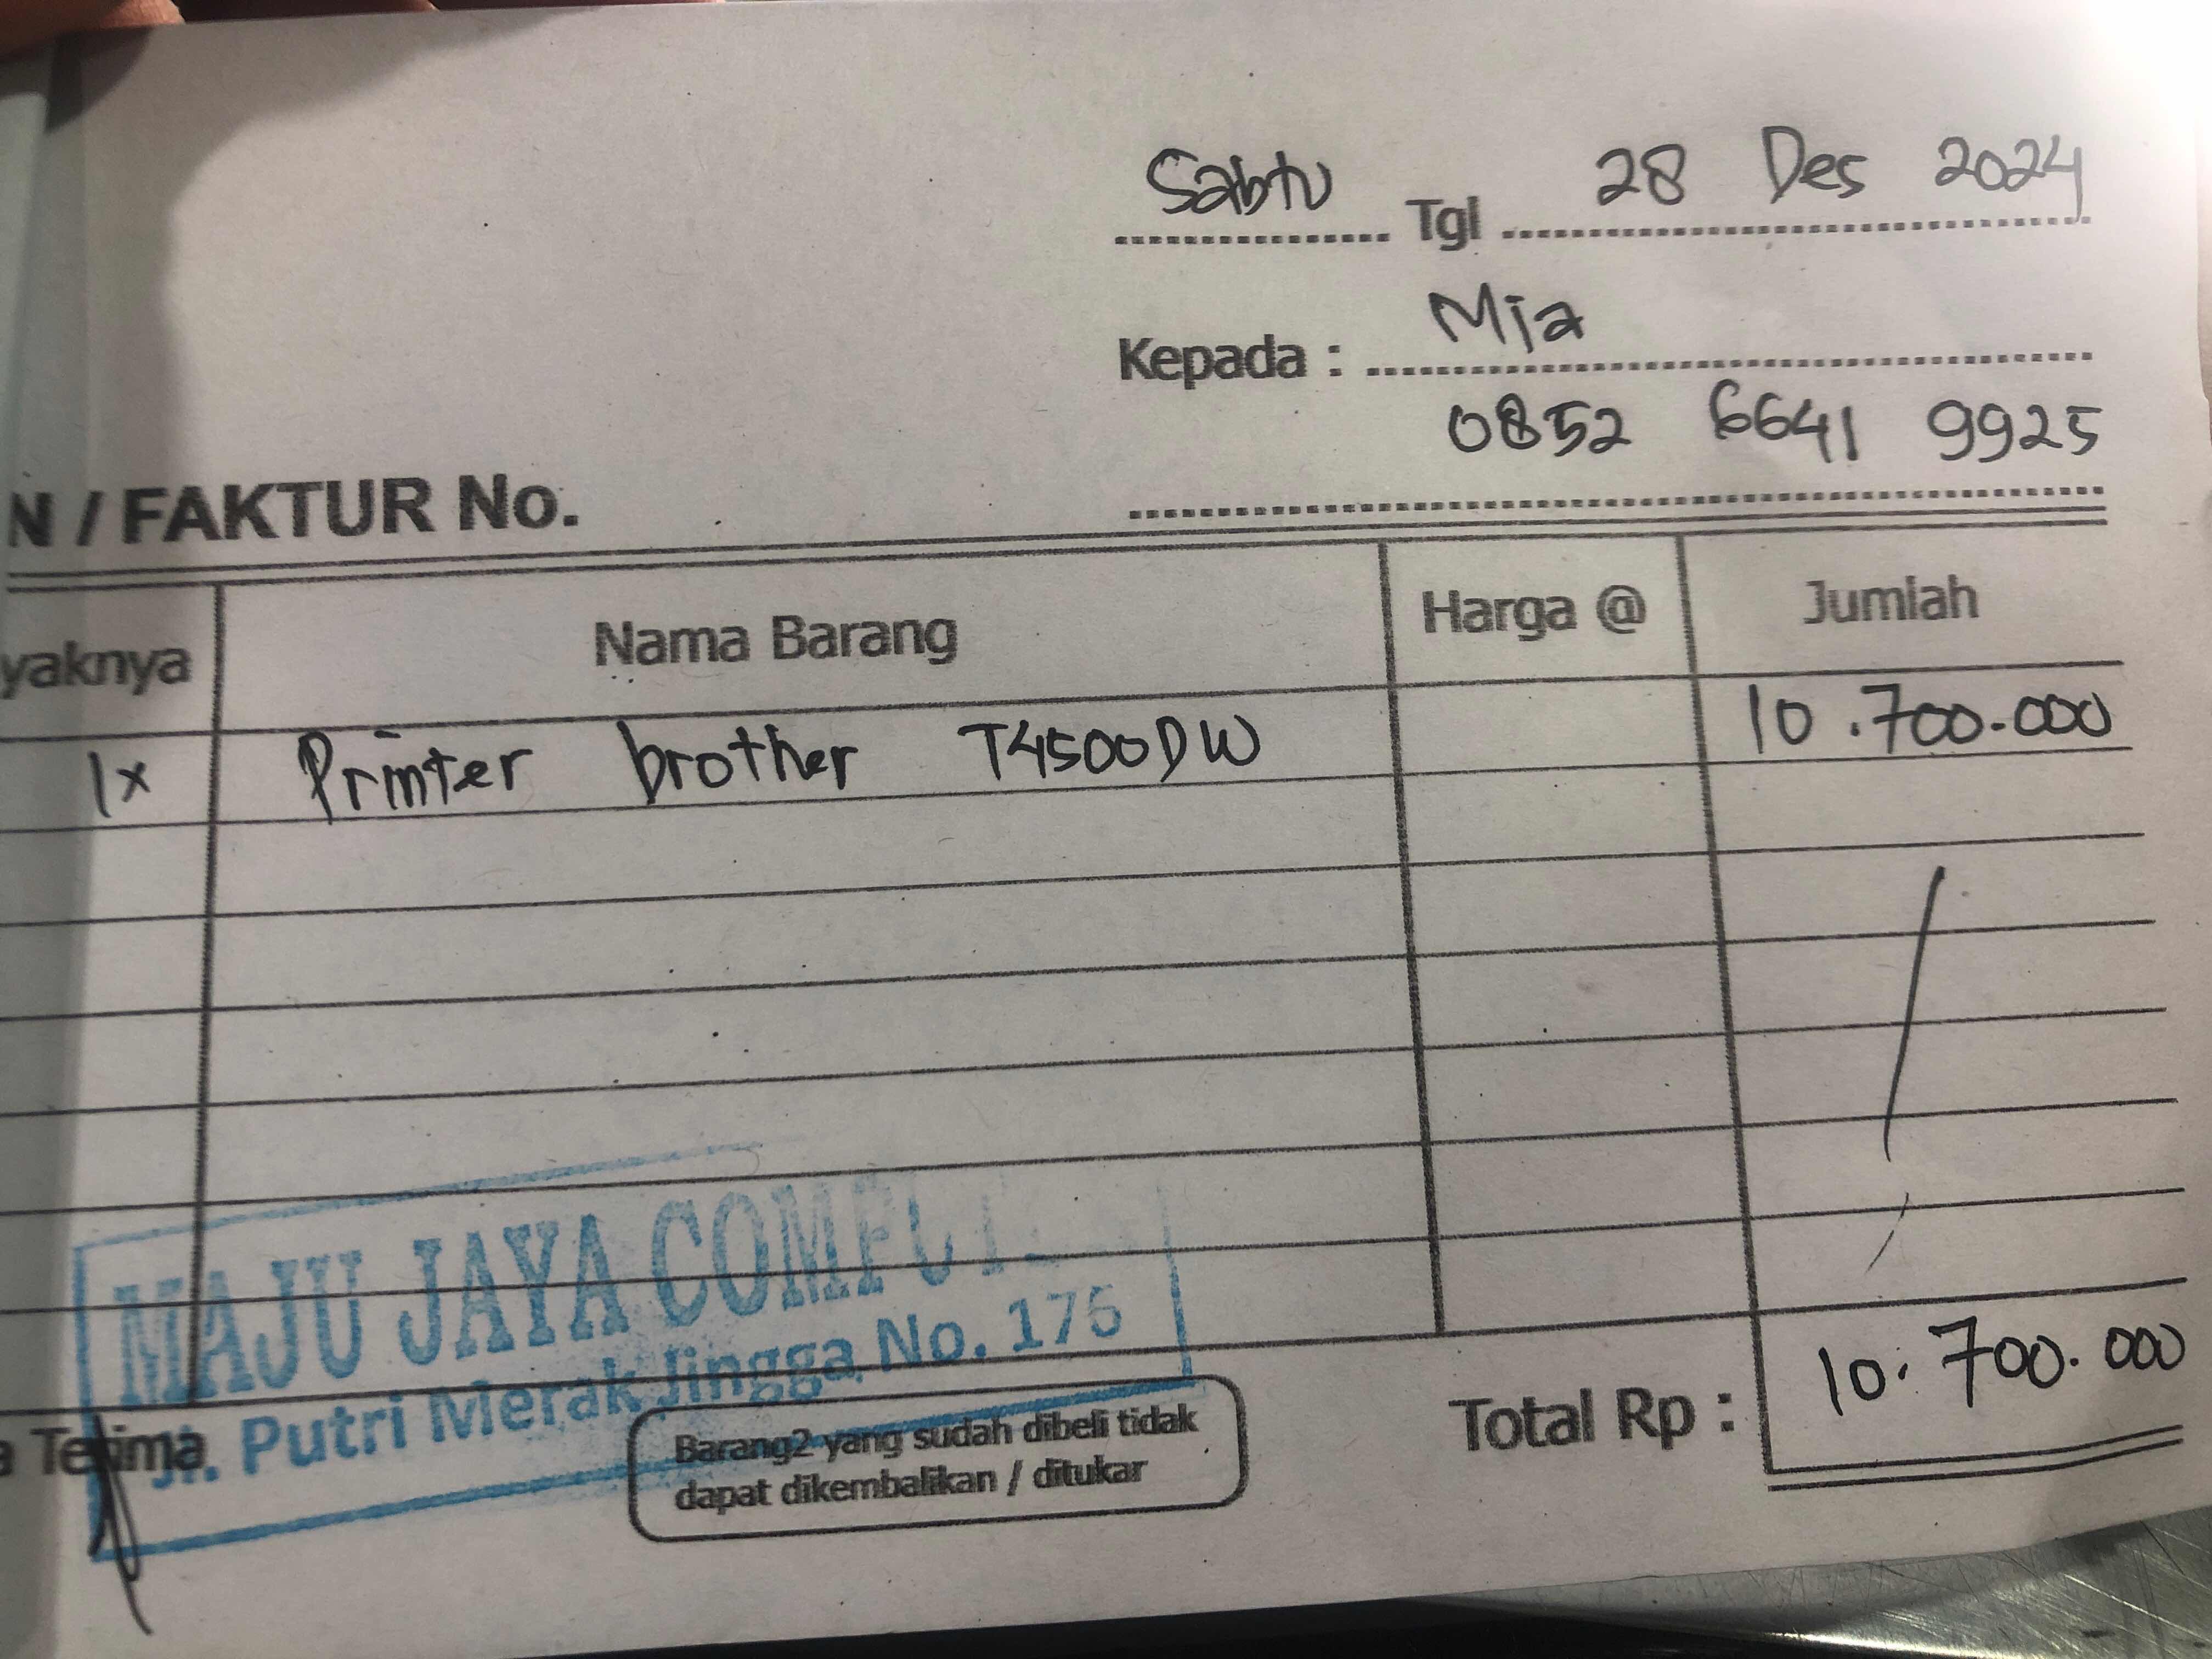 Sabtu Tgl 28 Des 2024
Kepada : Mia
0852 6641 9925
N / FAKTUR No.
yaknya Nama Barang Harga @ Jumlah
1x Printer brother T4500DW 10.700.000
MAJU JAYA
Jl. Putri Merak Jingga No. 175
a Terima
Barang2 yang sudah dibeli tidak
dapat dikembalikan / ditukar
Total Rp : 10.700.000